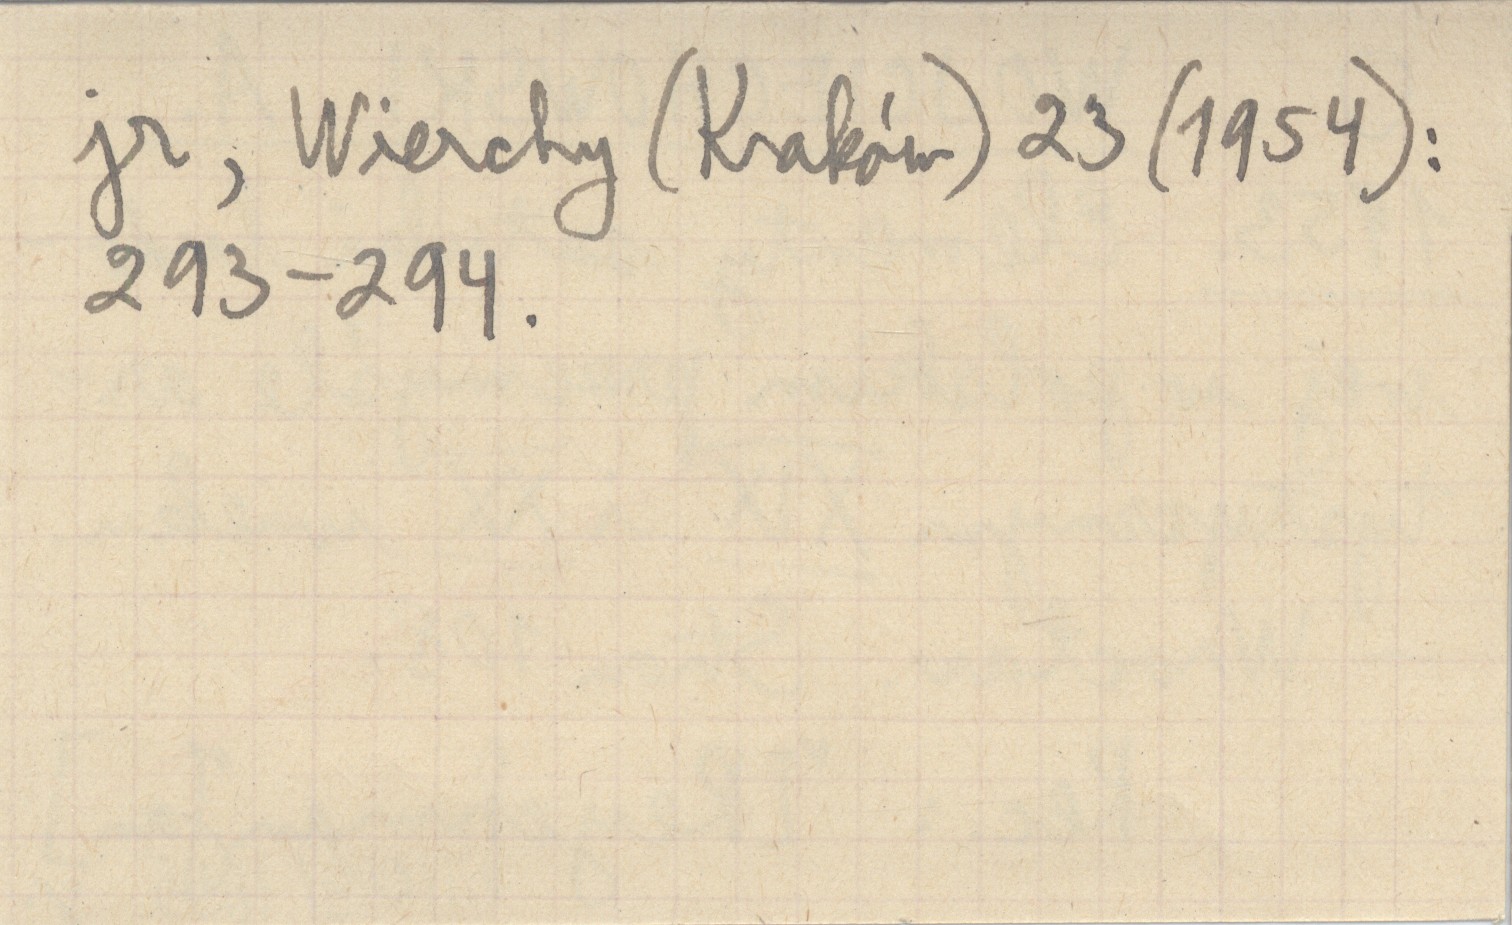 jr, Wierchy (Kraków) 23 (1954):
293-294.